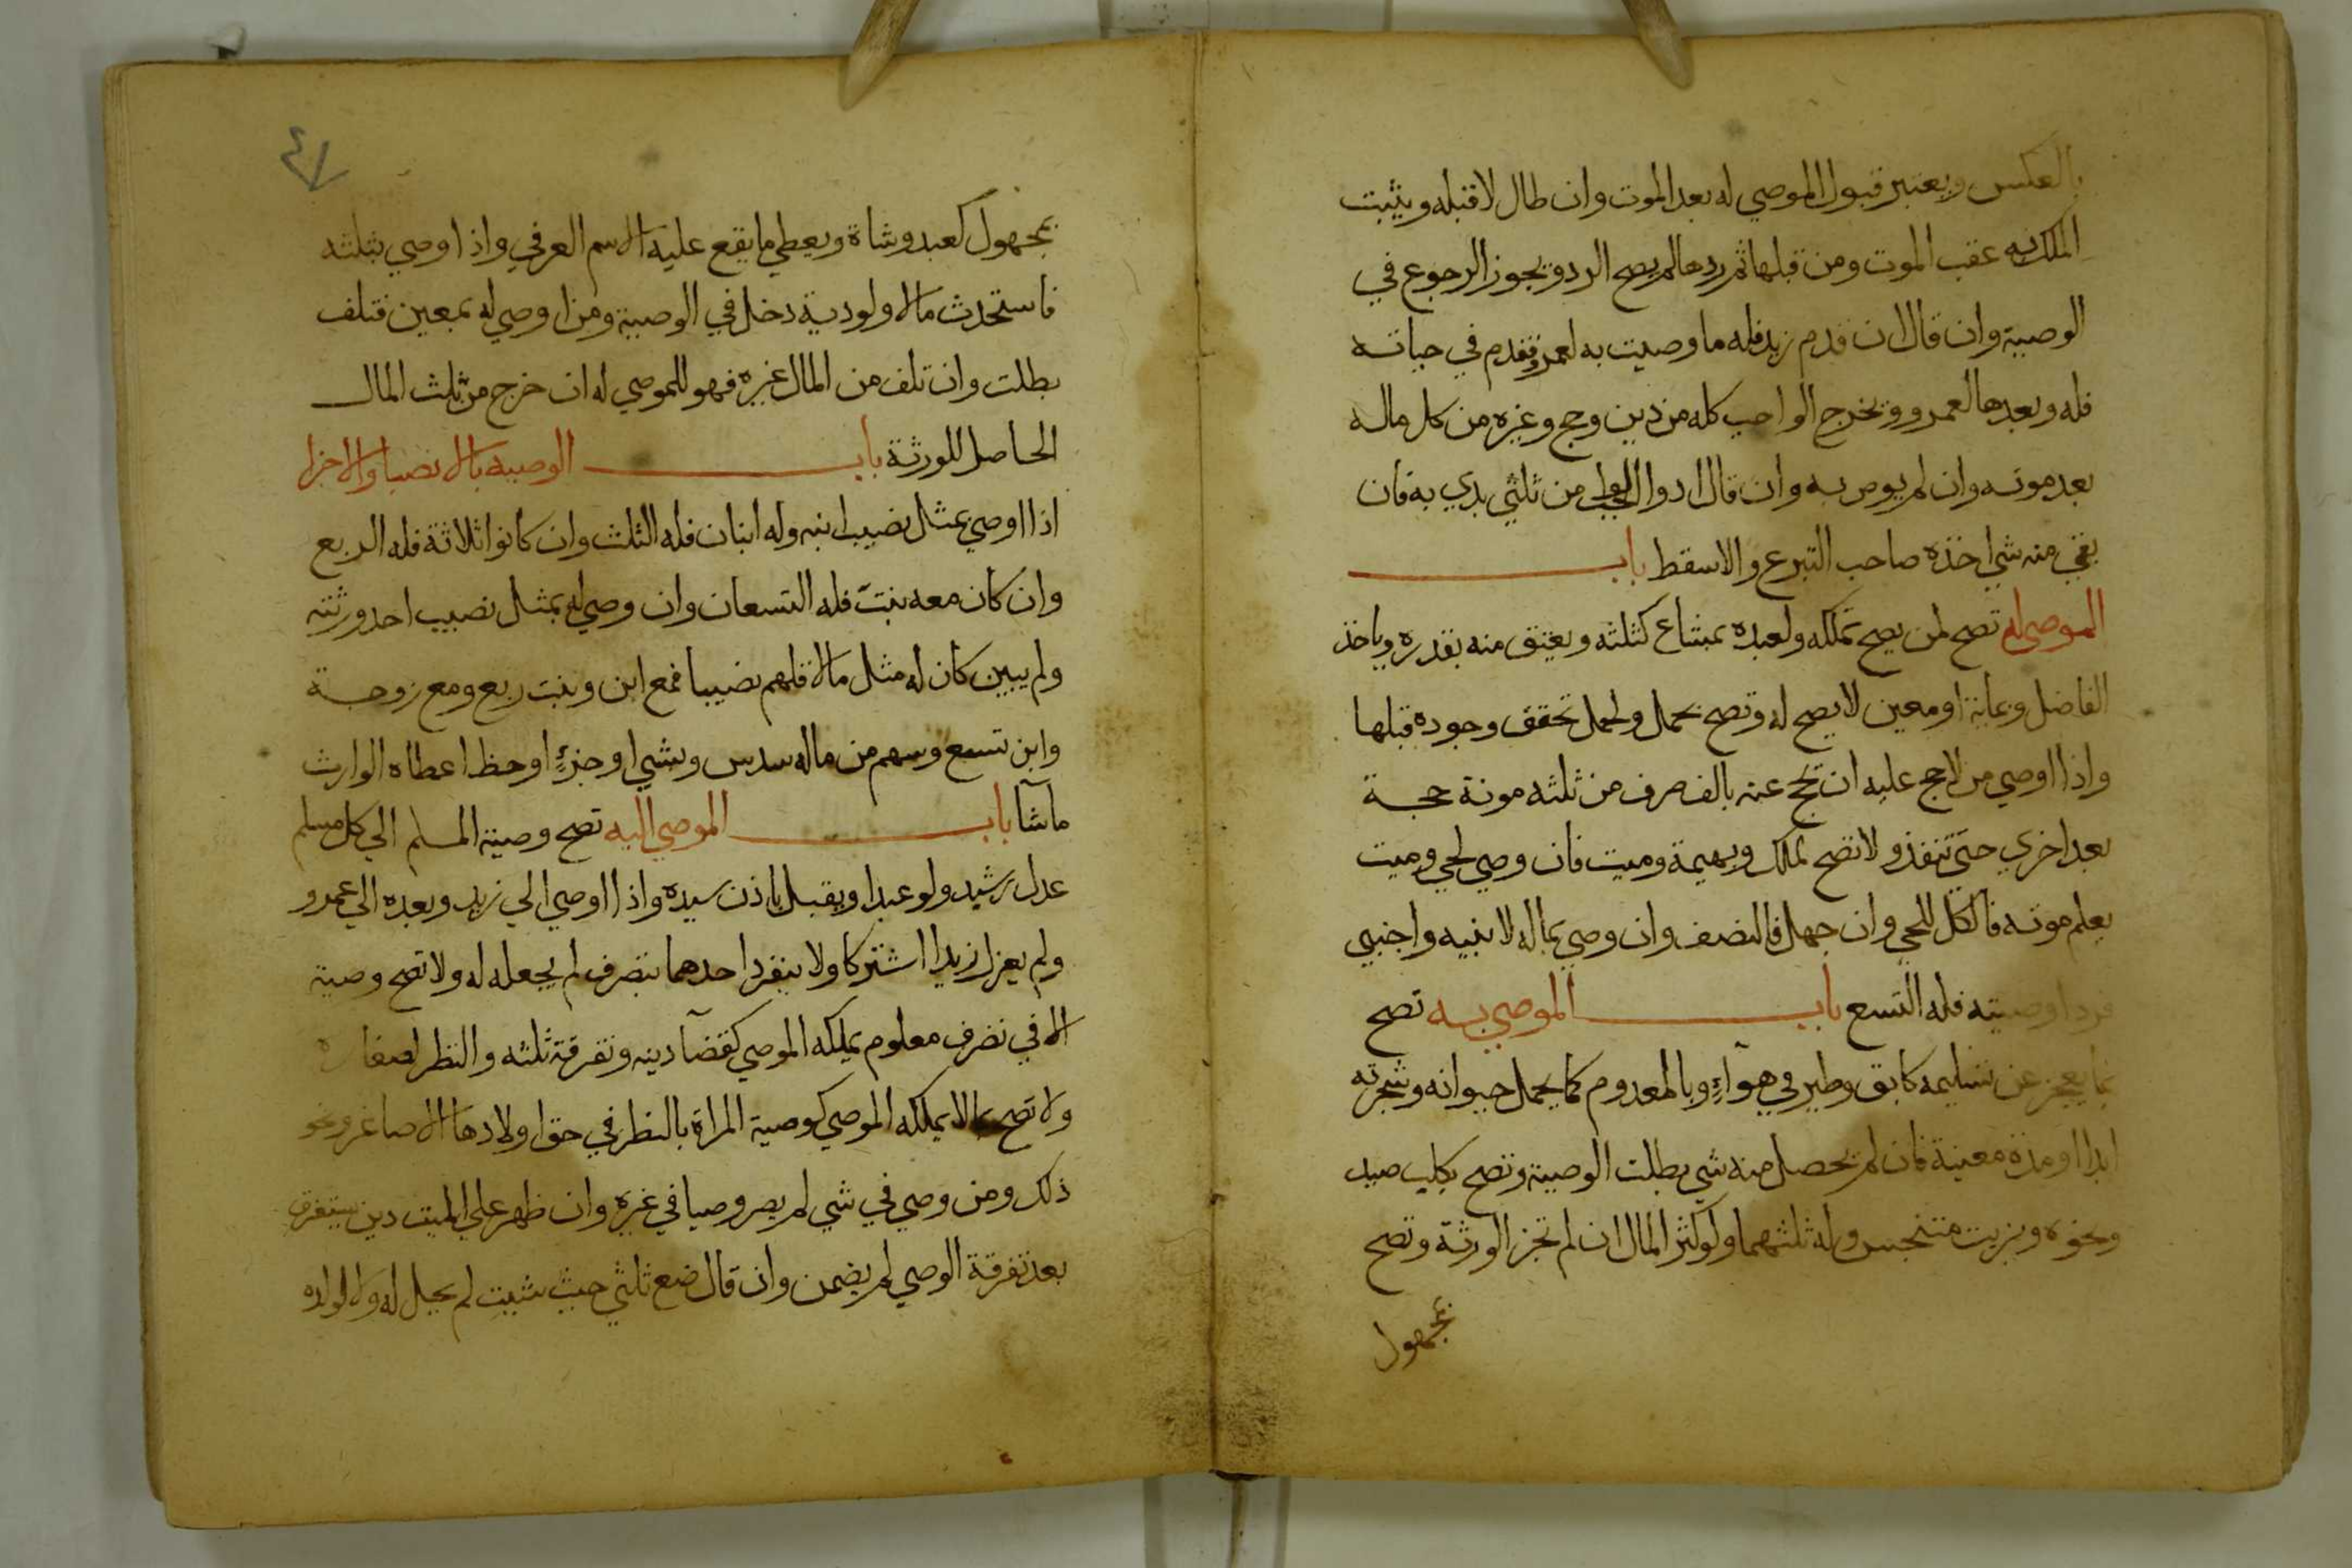 بالعكس ويعتبر قبول الموصي له بعد الموت وان طال لا قبله ويثبت
الملك به عقب الموت ومن قبلها ثم ردها لم يصح الرد ويجوز الرجوع في
الوصية وان قال ان قدم زيد فله ما وصيت به لعمرو فقدم في حياته
فله وبعدها لعمرو ويخرج الواجب كله من دين وحج وغيره من كل ماله
بعد موته وان لم يوص به وان قال ادوا الواجب من ثلثي بدي به فان
بقي منه شي اخذه صاحب التبرع والا سقط باب
الموصي له تصح لمن يصح تملكه ولعبده بمشاع كثلثه ويعتق منه بقدره وياخذ
الفاضل وبماية او معين لا يصح له وتصح بحمل ولحمل تحقق وجوده قبلها
واذا اوصي من لا حج عليه ان يحج عنه بالف صرف من ثلثه مونة حجة
بعد اخري حتي تنفذ ولا تصح لملك وبهيمة وميت فان وصي لحي وميت
يعلم موته فالكل للحي وان جهل فالنصف وان وصي بماله لابنيه واجنبي
فردا وصيته فله التسع باب الموصي به تصح
بما يعجز عن تسليمه كابق وطير في هوآءٍ وبالمعدوم كما يحمل حيوانه وشجرته
ابدا او مدة معينة فان لم يحصل منه شي بطلت الوصية وتصح بكلب صيد
ونحوه وبزيت متنجس وله ثلثهما ولو كثر المال ان لم تجز الورثة وتصح
بمجهول
٤٧
بمجهول كعبد وشاة ويعطي ما يقع عليه الاسم العرفي واذا اوصي بثلثه
فاستحدث مالا ولو دية دخل في الوصية ومن اوصي له بمعين فتلف
بطلت وان تلف من المال غيره فهو للموصي له ان خرج من ثلث المال
الحاصل للورثة باب الوصية بالانصبا والاجزا
اذا اوصي بمثل نصيب ابنه وله ابنان فله الثلث وان كانوا ثلاثة فله الربع
وان كان معه بنت فله التسعان وان وصي له بمثل نصيب احد ورثته
ولم يبين كان له مثل ما لاقلهم نصيبا فمع ابن وبنت ربع ومع زوجة
وابن تسع وسهم من ماله سدس وبشي او جزءٍ او حظ اعطاه الوارث
ما شآ باب الموصي اليه تصح وصية المسلم الي كل مسلم
عدل رشيد ولو عبدا ويقبل باذن سيده واذا اوصي الي زيد وبعده الي عمرو
ولم يعزل زيدا اشتركا ولا ينفرد احدهما بتصرف لم يجعله له ولا تصح وصية
الا في تصرف معلوم يملكه الموصي كقضآ دينه وتفرقة ثلثه والنظر لصغاره
ولا تصح بما لا يملكه الموصي كوصية المراة بالنظر في حق اولادها الاصاغر ونحو
ذلك ومن وصي في شي لم يصر وصيا في غيره وان ظهر علي الميت دين يستغرق
بعد تفرقة الوصي لم يضمن وان قال ضع ثلثي حيث شئت لم يحل له ولا لولده